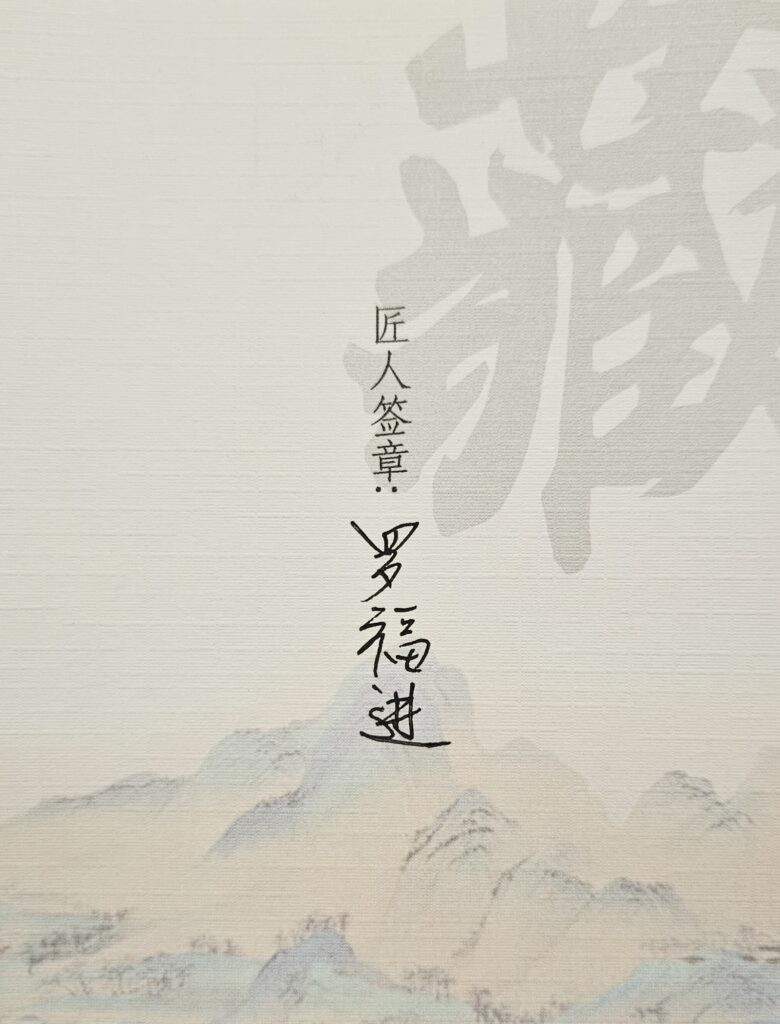 藏
匠人签章：
罗福进